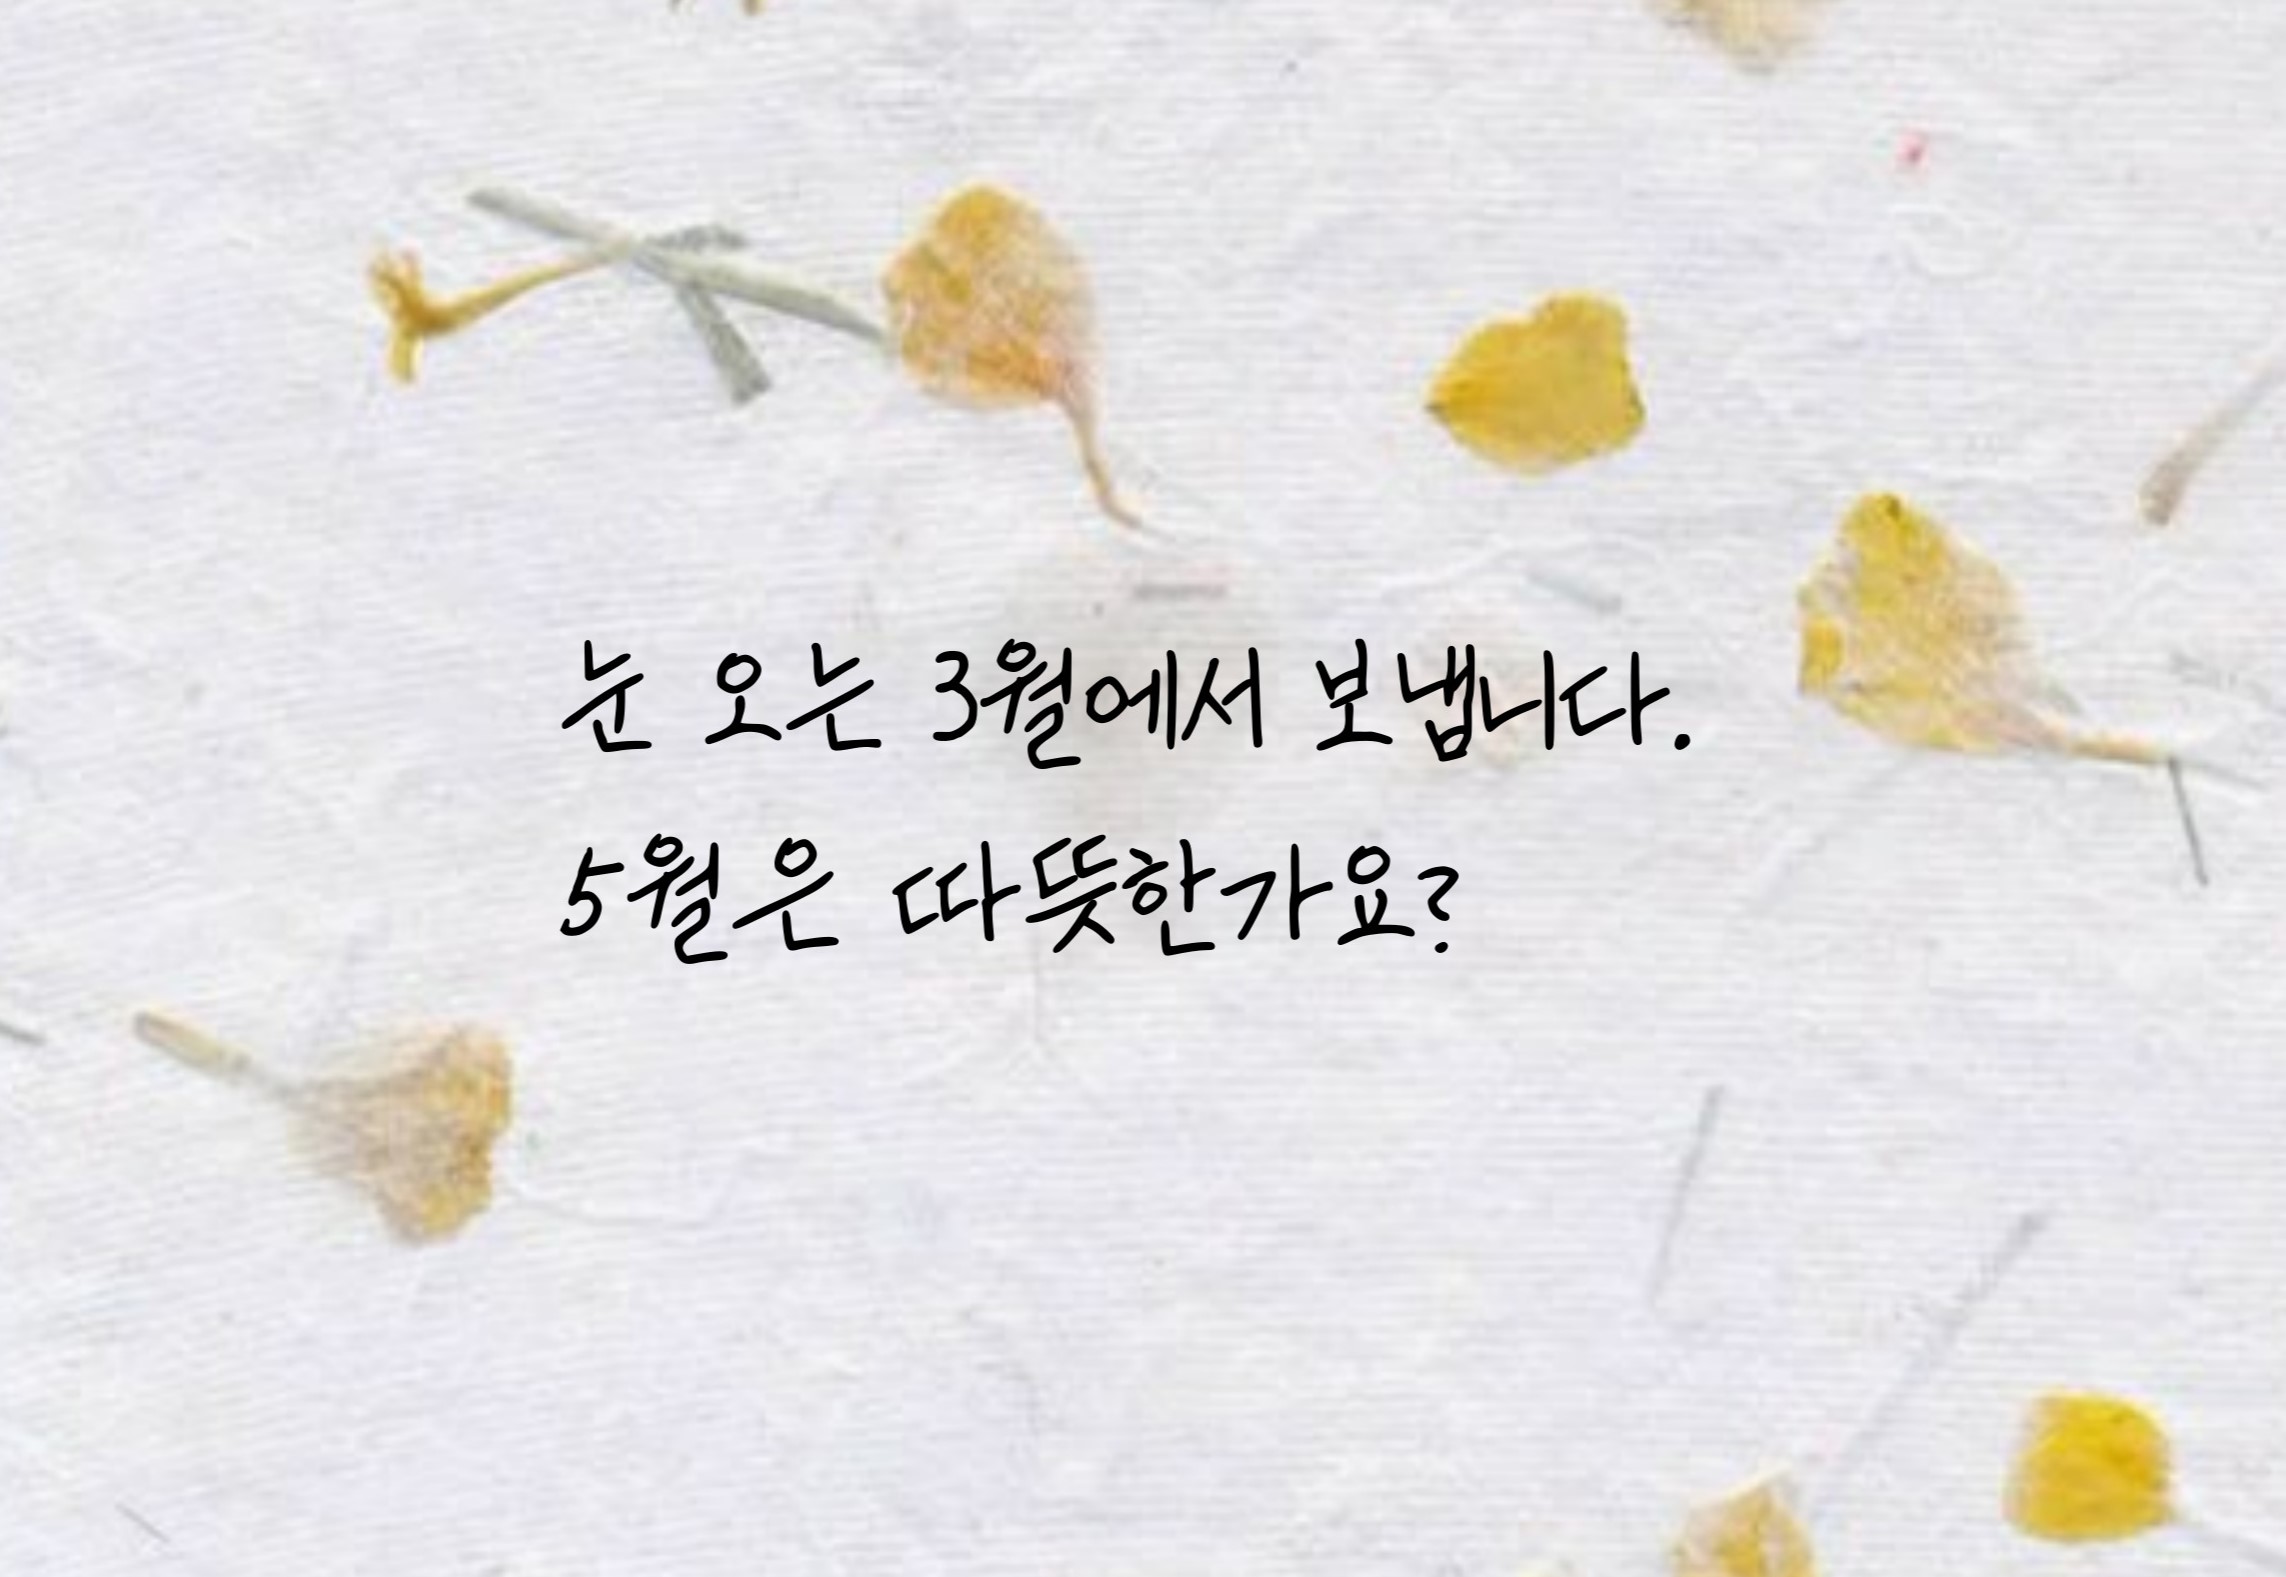 눈 오는 3월에서 보냅니다.
5월은 따뜻한가요?